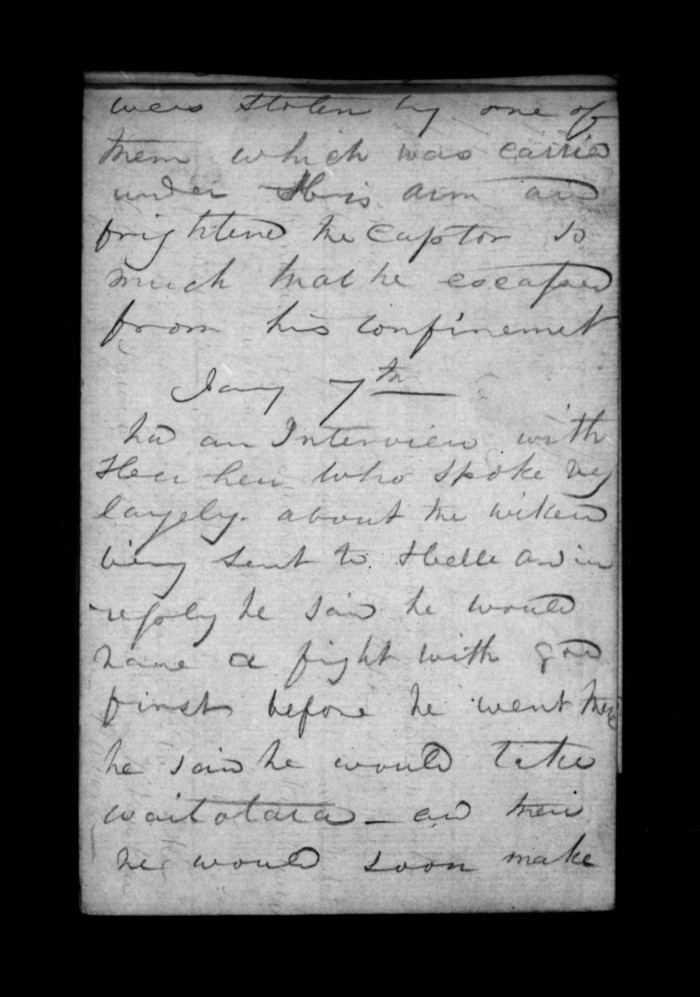 were stolen by one of
them which was carried
under his arm and
frightened the Captor so
much that he escaped
from his confinemet
Jany 7th
had an Interview with
who spoke vy
largely. about the wiked
being sent to Helle and in
reply he said he would
have a fight with god
first before he went there
he said he would take
waitotara - and then
he would soon make